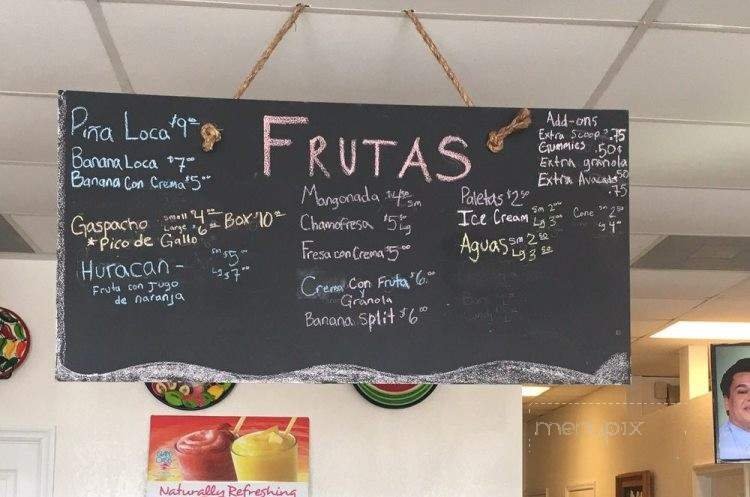 FRUTAS
Piña Loca $9.00
Banana Loca $7.00
Banana Con Crema $5.00
Gaspacho small $4.00 Box $10.00
Large $6.00
*Pico de Gallo
Huracan - sm $5.00
Lg $7.00
Fruta con Jugo
de naranja
Mangonada
sm
Chamofresa $5 Lg
Fresa con Crema $5.00
Crema Con Fruta $6.00
y
Granola
Banana split $6.00
Paletas $2.50
Ice Cream sm 2.00 Cone sm 2.50
Lg 3.00 Lg 4.00
Aguas sm 2.50
Lg 3.50
Add-ons
Extra Scoop $.75
Gummies .50¢
Extra granola
.50
Extra Avacado
.75
menupix
Naturally Refreshing